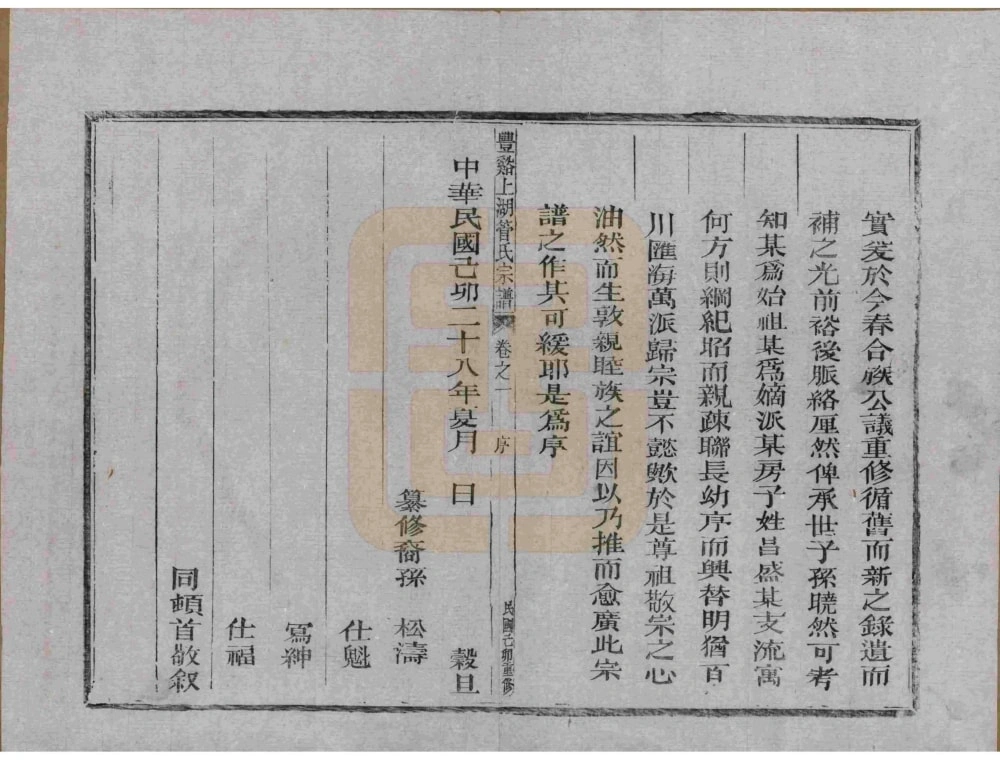 實爰於今春合族公議重修循舊而新之錄遺而
補之光前裕後脈絡厘然俾承世子孫曉然可考
知某爲始祖某爲嫡派某房子姓昌盛某支流寓
何方則綱紀昭而親疎聯長幼序而興替明猶百
川匯海萬派歸宗豈不懿歟於是尊祖敬宗之心
油然而生敦親睦族之誼因以乃推而愈廣此宗
譜之作其可緩耶是爲序
豐谿上湖管氏宗譜 卷之一 序 民國己卯重修
中華民國己卯二十八年夏月 日 穀旦
纂修裔孫 松濤
仕魁
寫紳
仕福
同頓首敬叙